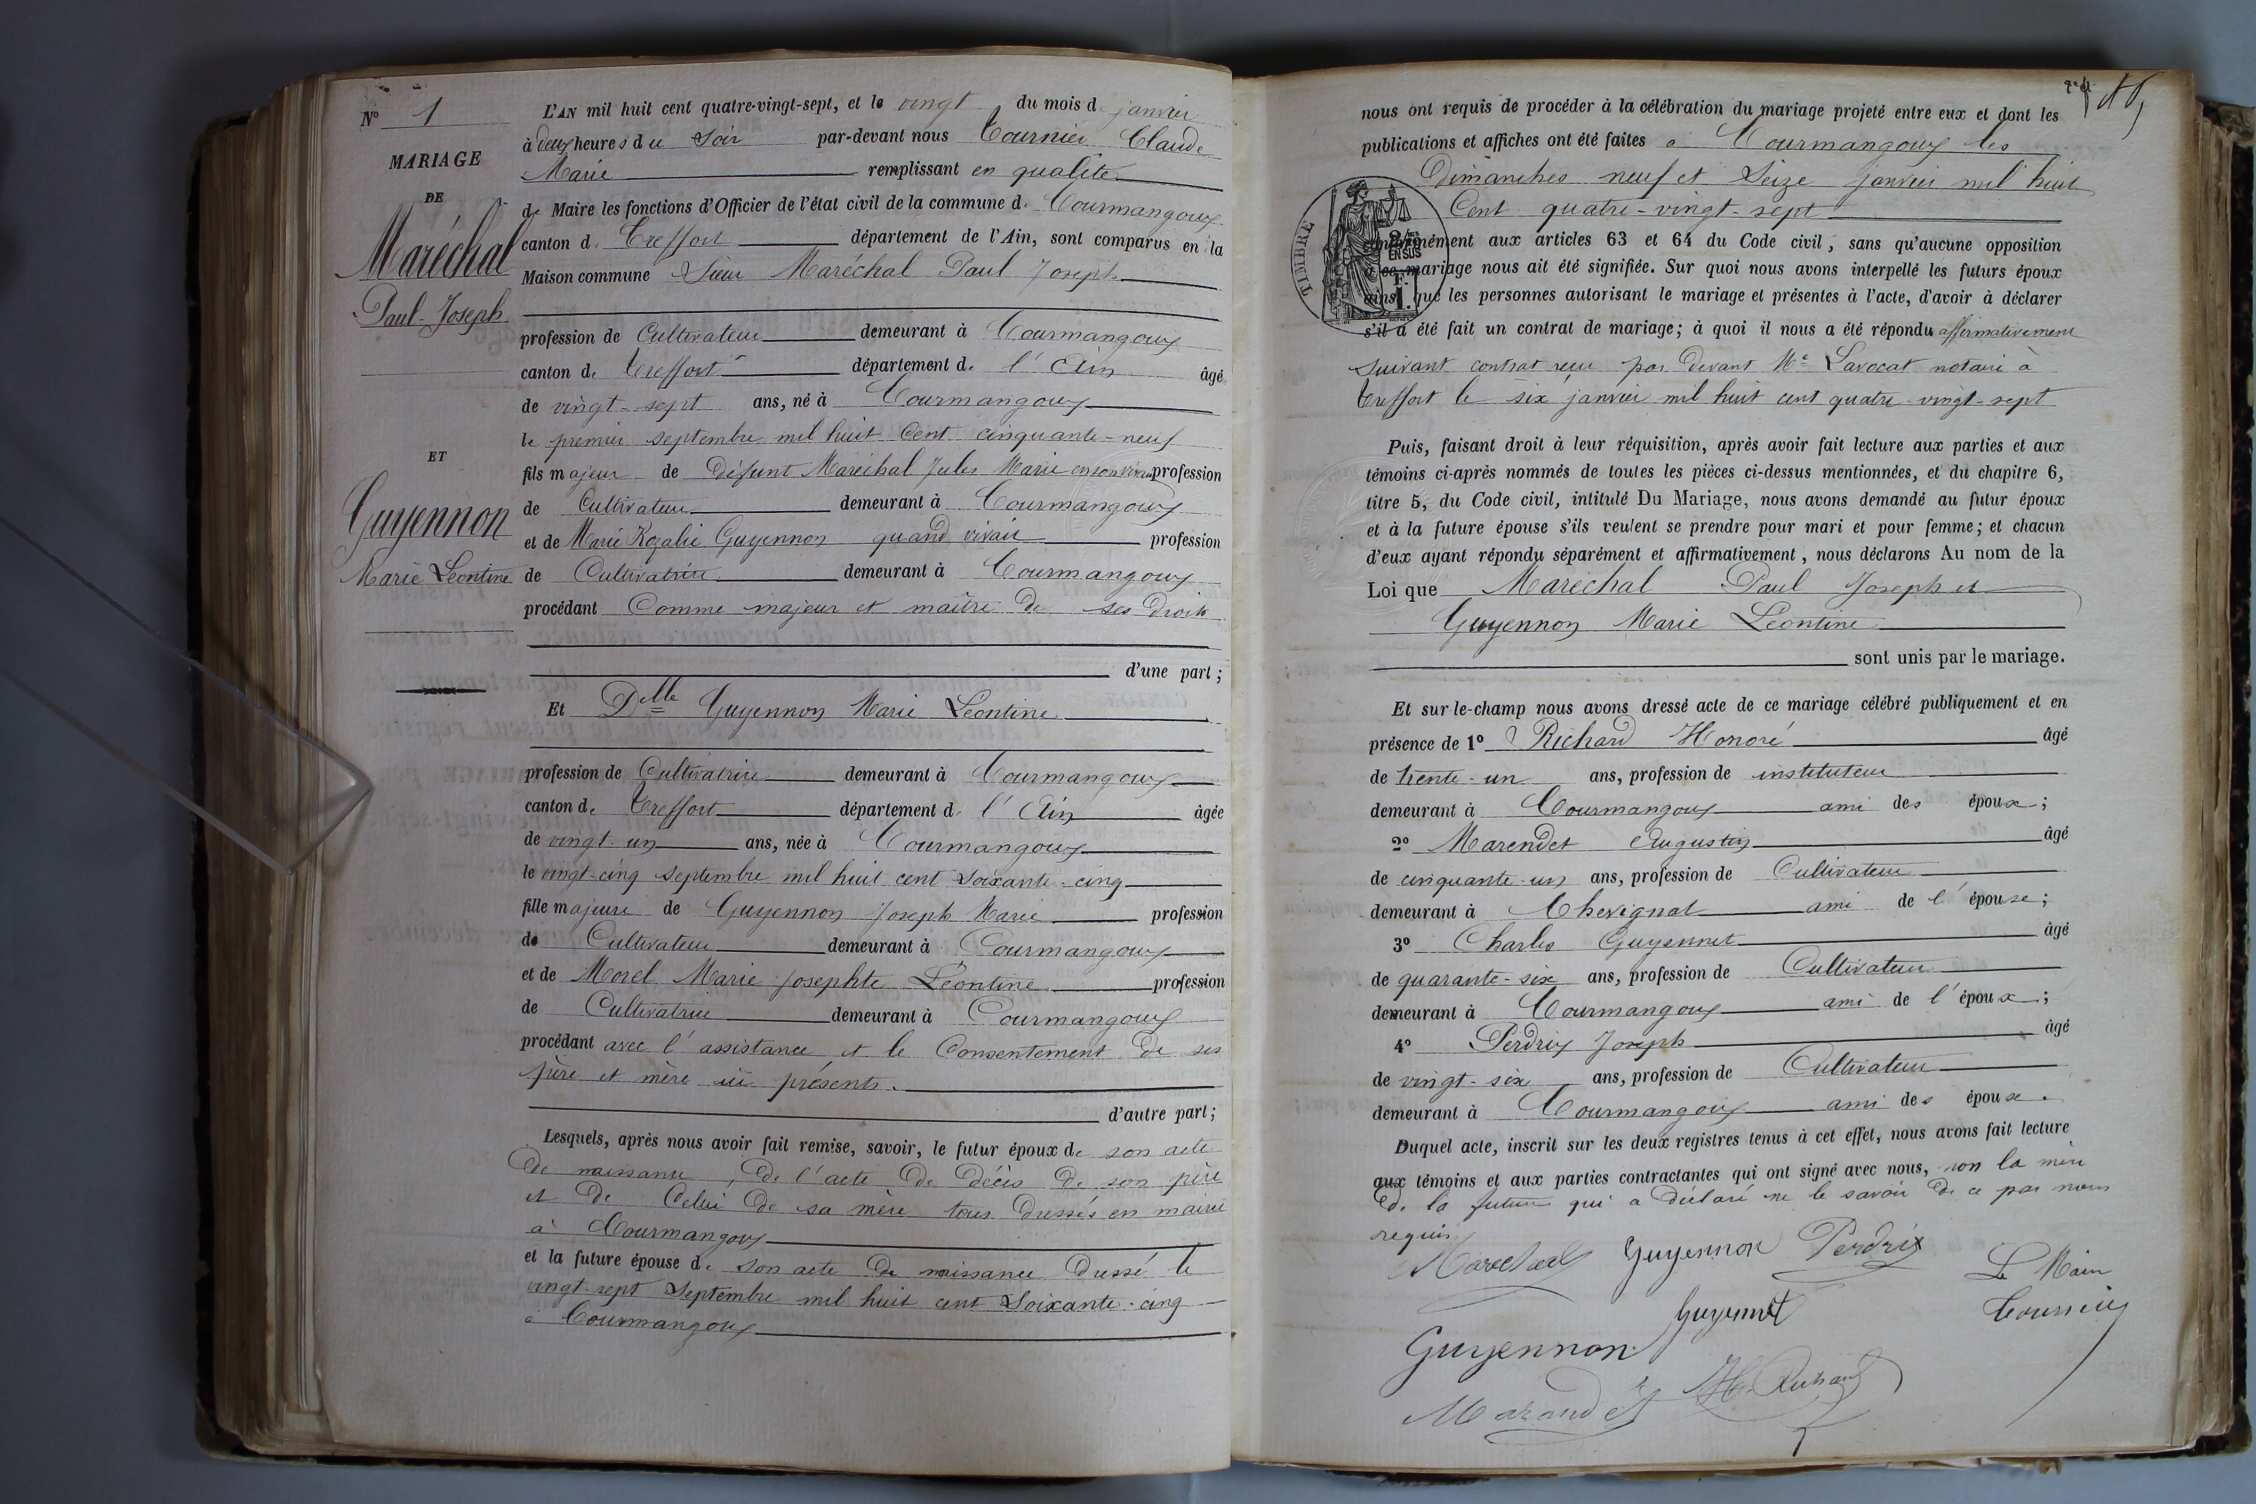 N° 1
MARIAGE
DE
Maréchal
Paul-Joseph
ET
Guyennon
Marie Léontine
L'AN mil huit cent quatre-vingt-sept, et le vingt du mois de janvier
à deux heures du soir par-devant nous Tournier Claude
Marie remplissant en qualité
de Maire les fonctions d'Officier de l'état civil de la commune de Courmangoux
canton de Treffort département de l'Ain, sont comparus en la
Maison commune Sieur Maréchal Paul Joseph
profession de Cultivateur demeurant à Courmangoux
canton de Treffort département de l'Ain âgé
de vingt-sept ans, né à Courmangoux
le premier septembre mil huit cent cinquante-neuf
fils majeur de Défunt Maréchal Jules Marie en son vivant profession
de Cultivateur demeurant à Courmangoux
et de Marie Rozalie Guyennon quand vivait profession
de Cultivatrice demeurant à Courmangoux
procédant Comme majeur et maître de ses droits
d'une part ;
Et Delle Guyennon Marie Léontine
profession de Cultivatrice demeurant à Courmangoux
canton de Treffort département de l'Ain âgée
de vingt-un ans, née à Courmangoux
le vingt-cinq septembre mil huit cent soixante-cinq
fille majeure de Guyennon Joseph Marie profession
de Cultivateur demeurant à Courmangoux
et de Morel Marie Josephte Léontine profession
de Cultivatrice demeurant à Courmangoux
procédant avec l'assistance et le Consentement de ses
père et mère ici présents.
d'autre part ;
Lesquels, après nous avoir fait remise, savoir, le futur époux de son acte
de naissance, de l'acte de décès de son père
et de Celui de sa mère tous dressés en mairie
à Courmangoux
et la future épouse de son acte de naissance dressé le
vingt-sept septembre mil huit cent soixante-cinq
à Courmangoux
nous ont requis de procéder à la célébration du mariage projeté entre eux et dont les
publications et affiches ont été faites à Courmangoux les
Dimanches neuf et Seize janvier mil huit
Cent quatre-vingt-sept
conformément aux articles 63 et 64 du Code civil, sans qu'aucune opposition
à ce mariage nous ait été signifiée. Sur quoi nous avons interpellé les futurs époux
ainsi que les personnes autorisant le mariage et présentes à l'acte, d'avoir à déclarer
s'il a été fait un contrat de mariage ; à quoi il nous a été répondu affirmativement
suivant contrat reçu par devant Me Lavocat notaire à
Treffort le six janvier mil huit cent quatre-vingt-sept
TIMBRE
2/10 EN SUS
Puis, faisant droit à leur réquisition, après avoir fait lecture aux parties et aux
témoins ci-après nommés de toutes les pièces ci-dessus mentionnées, et du chapitre 6,
titre 5, du Code civil, intitulé Du Mariage, nous avons demandé au futur époux
et à la future épouse s'ils veulent se prendre pour mari et pour femme ; et chacun
d'eux ayant répondu séparément et affirmativement, nous déclarons Au nom de la
Loi que Maréchal Paul Joseph et
Guyennon Marie Léontine
sont unis par le mariage.
Et sur-le-champ nous avons dressé acte de ce mariage célébré publiquement et en
présence de 1° Richard Honoré âgé
de trente-un ans, profession de instituteur
demeurant à Courmangoux ami des époux ;
2° Marendet Augustin âgé
de cinquante-un ans, profession de Cultivateur
demeurant à Chevignat ami de l'épouse ;
3° Charles Guyennet âgé
de quarante-six ans, profession de Cultivateur
demeurant à Courmangoux ami de l'époux ;
4° Perdrix Joseph âgé
de vingt-six ans, profession de Cultivateur
demeurant à Courmangoux ami des époux.
Duquel acte, inscrit sur les deux registres tenus à cet effet, nous avons fait lecture
aux témoins et aux parties contractantes qui ont signé avec nous, non la mère
de la future qui a déclaré ne le savoir de ce par nous
requis
Marechal Guyennon Perdrix
Le Maire
Guyennet Tournier
Guyennon
Marandet H. Richard